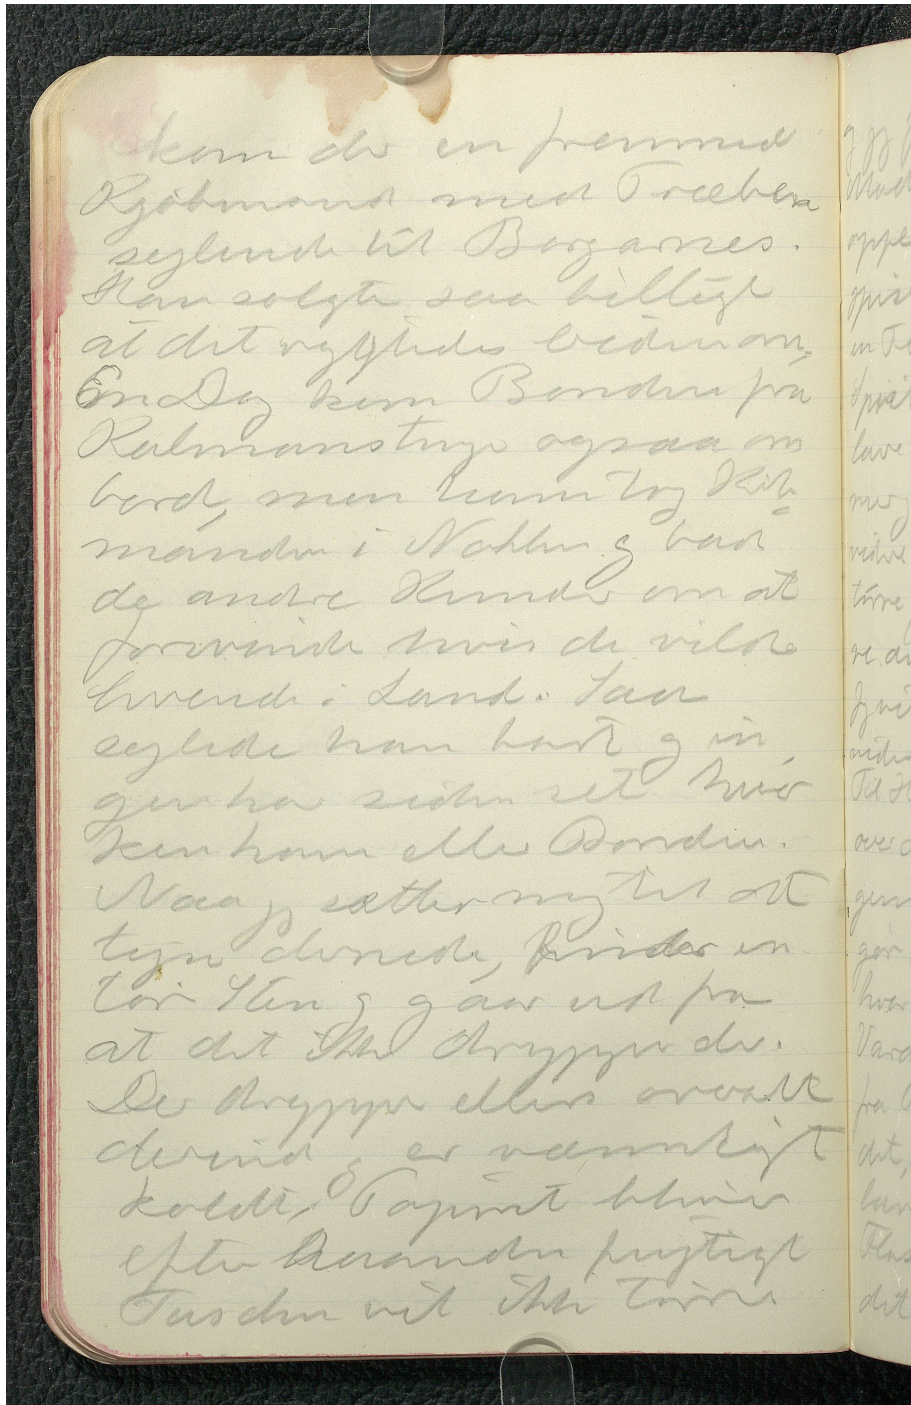 kom der en fremmed
Kjøbmand med Træben
sejlende til Borgarnes.
Han solgte saa billigt
at det rygtedes viden om,
En Dag kom Bonden fra
Kalmanstunga ogsaa om
bord, men ham tog Køb-
manden i Nakken g bad
de andre Kunder om at
forsvinde hvis de vilde
levende i Land. Saa
sejlede han bort g in
gen har siden set hver
ken ham eller Bonden.
Naa jg sætter mig til at
tegne dernede, finder en
tør Sten g gaar ud fra
at det ikke drypper der.
Der drypper ellers overalt
derind g er væmmeligt
koldt, Papiret bliver
efter haanden fugtigt
Tuschen vil ikke tørre
g jg
Mad
opple
spir
en
Sprit
lave
mig
videre
tørre
jg vil
Til
over
gen
gør
hvor
Vard
fra
det,
lav
Flas
det